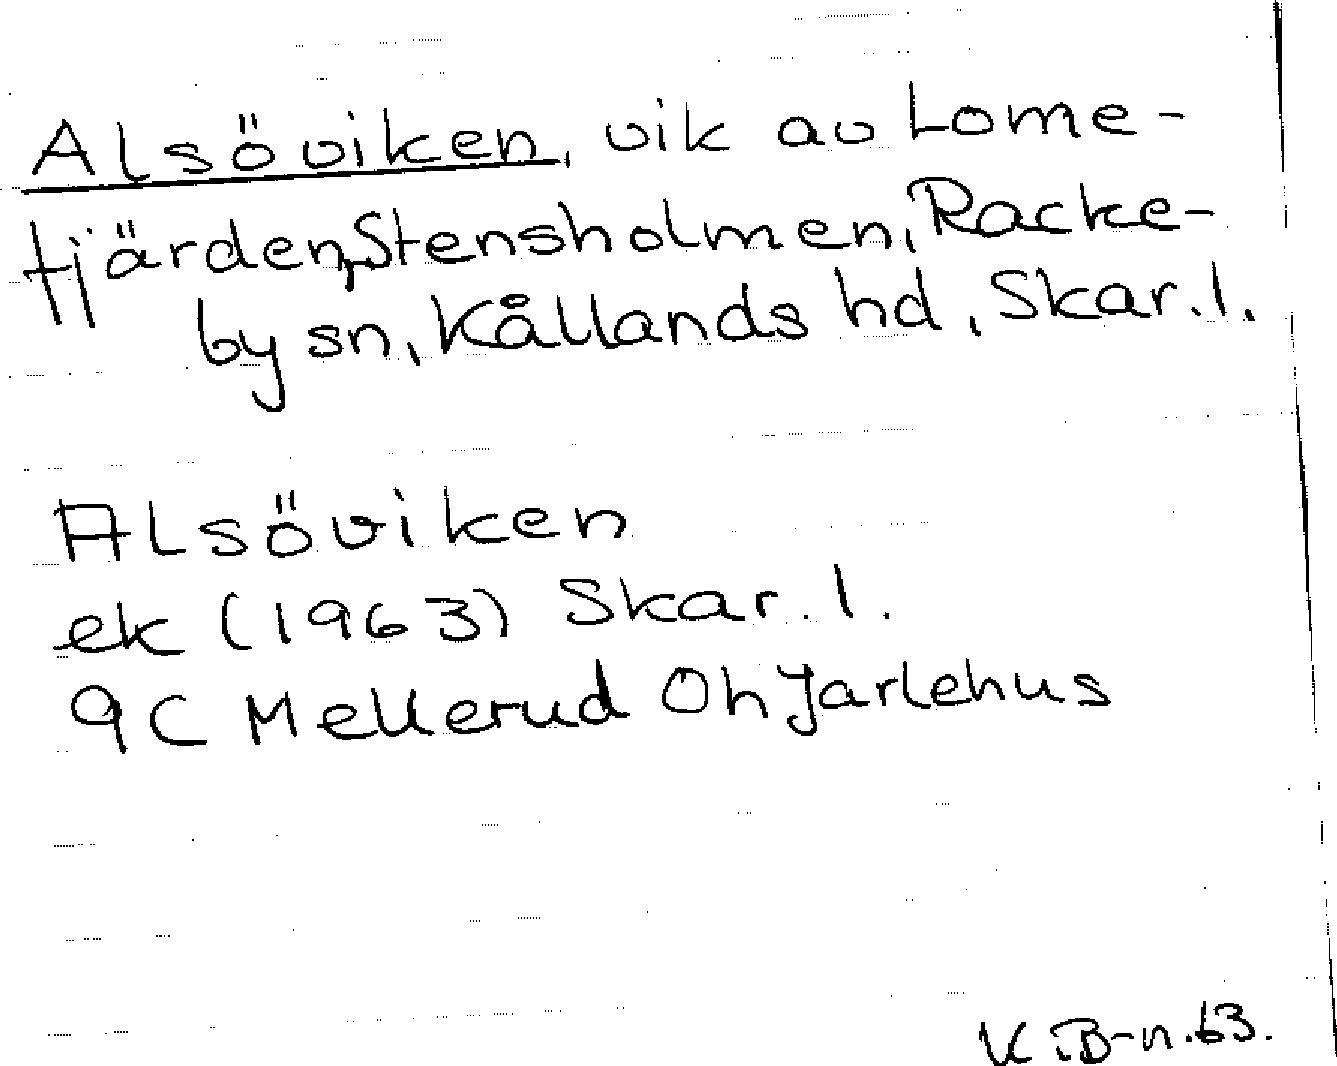 Alsöviken, vik av Lome-
fjärden, Stensholmen, Racke-
by sn, Kållands hd, Skar. l.
Alsöviken
ek (1963) Skar. l.
9C Mellerud Oh Jarlehus
K. B-n. 63.